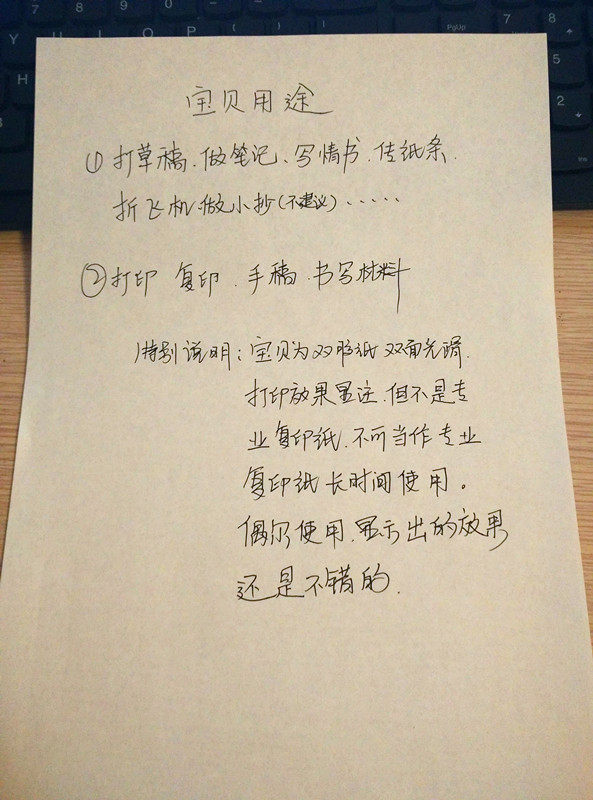 7 8 9 0
7 8
Y U L O P
PgUp
H
5
2
Ins
宝贝用途
①打草稿、做笔记、写情书、传纸条、
折飞机、做小抄(不建议)······
②打印 复印、手稿、书写材料
特别说明:宝贝为双胶纸 双面光滑.
打印效果显还,但不是专
业复印纸,不可当作专业
复印纸长时间使用。
偶尔使用,显示出的效果
还是不错的.